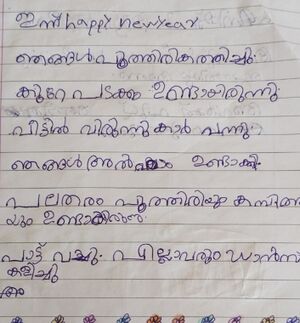 ഇന്ന് happy newyear
ഞങ്ങൾ പൂത്തിരി കത്തിച്ചു.
കുറേ പടക്കം ഉണ്ടായിരുന്നു
വീട്ടിൽ വിരുന്നുകാർ വന്നു
ഞങ്ങൾ അൽഫാം ഉണ്ടാക്കി
പലതരം പൂത്തിരിയും
യും ഉണ്ടായിരുന്നു.
പാട്ട് വച്ചു. എല്ലാവരും ഡാൻസ്
കളിച്ചു